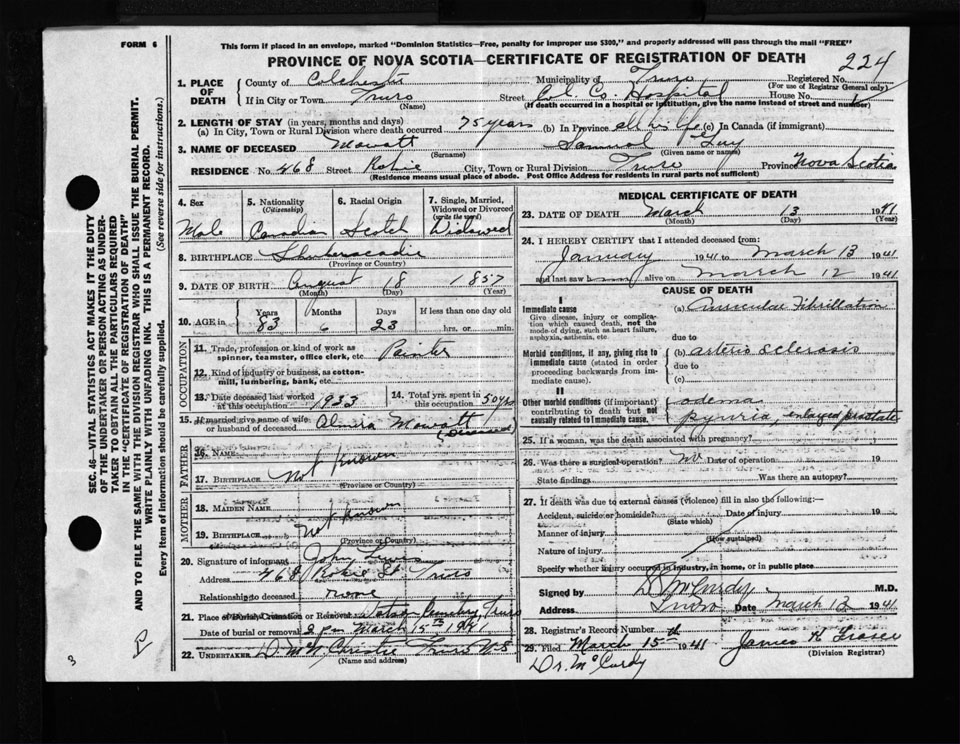 FORM 6
This form if placed in an envelope, marked "Dominion Statistics—Free, penalty for improper use $300," and properly addressed will pass through the mail "FREE"
PROVINCE OF NOVA SCOTIA—CERTIFICATE OF REGISTRATION OF DEATH
224
1. PLACE OF DEATH
County of Colchester Municipality of Truro Registered No.
(For use of Registrar General only)
If in City or Town Truro Street Col. Co. Hospital House No.
(Name) (If death occurred in a hospital or institution, give the name instead of street and number)
2. LENGTH OF STAY (in years, months and days)
(a) In City, Town or Rural Division where death occurred 75 years (b) In Province all his life (c) In Canada (if immigrant)
3. NAME OF DECEASED Mowatt Samuel Guy
(Surname) (Given name or names)
RESIDENCE No. 468 Street Robie City, Town or Rural Division Truro Province Nova Scotia
(Residence means usual place of abode. Post Office Address for residents in rural parts not sufficient)
4. Sex
Male
5. Nationality
(Citizenship)
Canadian
6. Racial Origin
Scotch
7. Single, Married, Widowed or Divorced
(write the word)
Widowed
8. BIRTHPLACE Shubenacadie
(Province or Country)
9. DATE OF BIRTH August 18 1857
(Month) (Day) (Year)
10. AGE in Years Months Days If less than one day old
83 6 23 hrs. or min.
OCCUPATION
11. Trade, profession or kind of work as spinner, teamster, office clerk, etc. Painter
12. Kind of industry or business, as cotton-mill, lumbering, bank, etc.
13. Date deceased last worked at this occupation 1933
14. Total yrs. spent in this occupation 50 yrs
15. If married give name of wife or husband of deceased Almira Mowatt
FATHER
16. NAME
17. BIRTHPLACE Not Known
(Province or Country)
MOTHER
18. MAIDEN NAME
19. BIRTHPLACE Not Known
(Province or Country)
20. Signature of informant John Lewis
Address 468 Robie St. Truro
Relationship to deceased none
21. Place of Burial, Cremation or Removal Cemetery, Truro
Date of burial or removal 2 pm March 15th 1941
22. UNDERTAKER Christie Truro N.S
(Name and address)
MEDICAL CERTIFICATE OF DEATH
23. DATE OF DEATH March 13 1941
(Month) (Day) (Year)
24. I HEREBY CERTIFY that I attended deceased from:
January 1941 to March 13 1941
and last saw h alive on March 12 1941
CAUSE OF DEATH
I
Immediate cause
Give disease, injury or complication which caused death, not the mode of dying, such as heart failure, asphyxia, asthenia, etc.
(a) Auricular Fibrillation
due to
Morbid conditions, if any, giving rise to immediate cause (stated in order proceeding backwards from immediate cause).
(b) arterio sclerosis
due to
(c)
II
Other morbid conditions (if important) contributing to death but not causally related to immediate cause.
odema
pyuria, enlarged prostate
25. If a woman, was the death associated with pregnancy?
26. Was there a surgical operation? no Date of operation 19
State findings Was there an autopsy?
27. If death was due to external causes (violence) fill in also the following:—
Accident, suicide or homicide? Date of injury 19
(State which)
Manner of injury
(How sustained)
Nature of injury
Specify whether injury occurred in industry, in home, or in public place
Signed by McCurdy M.D.
Address Truro Date March 13 1941
28. Registrar's Record Number
29. Filed March 15th 1941 James H. Fraser
(Division Registrar)
Dr. McCurdy
SEC. 46—VITAL STATISTICS ACT MAKES IT THE DUTY
OF THE UNDERTAKER OR PERSON ACTING AS UNDER-
TAKER TO OBTAIN ALL THE PARTICULARS REQUIRED
IN THE "CERTIFICATE OF REGISTRATION OF DEATH"
AND TO FILE THE SAME WITH THE DIVISION REGISTRAR WHO SHALL ISSUE THE BURIAL PERMIT.
WRITE PLAINLY WITH UNFADING INK. THIS IS A PERMANENT RECORD.
Every item of information should be carefully supplied. (See reverse side for instructions.)
3